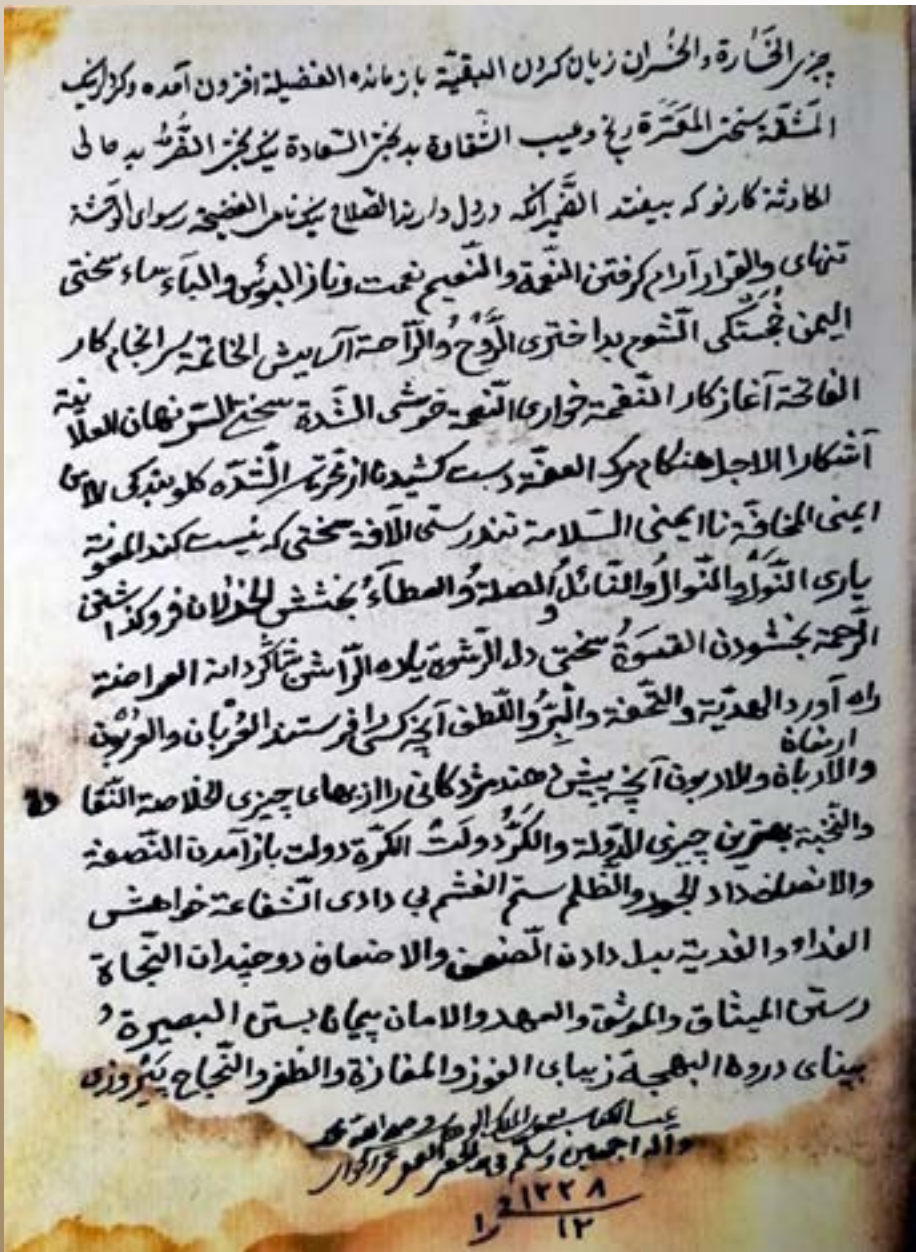 چیزی الخَسارة والخُسران زیان کردن البقیّة باز مانده الفضیلة افزون آمده
المَشقّة سختی المَعَرّة رنج وعیب الشّقاوة بدبختی السّعادة نیکبختی الضُّرّ بد حالی
الحادثة کار نو که بیفتد الضَّمیر آنکه در دل دارند الصّلاح نیکنامی الفضیحة رسوای الوَحشة
تنهای والقرار آرام کرفتن النّعمة والنّعیم نعمت وناز البؤس والبأساء سختی
الیمن خُجستَکی الشّوم بداختری الرَّوْحُ والرّاحة آسایش الخاتمة سرانجام کار
الفاتحة آغاز کار النّقمة خواری النّعمة خوشی الشّدة سختی السّر نهان العلانیة
آشکارا الاجل هنکام مرک العفّة دست کشیدن از
ایمنی المخافة ناایمنی السّلامة تندرستی الآفة سختی که نیست کند المعونة
یاری النَّوْلُ والنّوالُ والنّائلُ والصلةُ والعطآءُ بخشش الخذلان فروکذاشتن
الرّحمة بخشودن القسوَةُ سختی دل الرّشوة پاره الراشن شاکردانه العراضة
راه آورد الهدیّة والتّحفة والبِرُّ واللّطف آنچه کسی را فرستند العُرْبان والعربون
ارمغان
والاربان والاربون آنچه پیش دهند مزدکانی را از بهای چیزی الخلاصة النّقاوة
والنّخبة بهترین چیزی الدّولة والکَرُّ دولَتْ الکَرّة دولت باز آمدن النّصفة
والانصاف داد الجور والظلم ستم الغشم بی دادی الشّفاعة خواهش
الفداءُ والفدیة بدل دادن الضّعف والاضعاف دوچندان النّجاة
رستن المیثاق والموثق والعهد والامان پیمان بستن البصیرة
بینای دروه البهجة زیبای الفوز والمفازة والظفر والنّجاح پیروزی
تمت الکتاب بعون الملک الوهاب وصلی الله محمد
وآله اجمعین وسلم
١٢٢٨
١٢